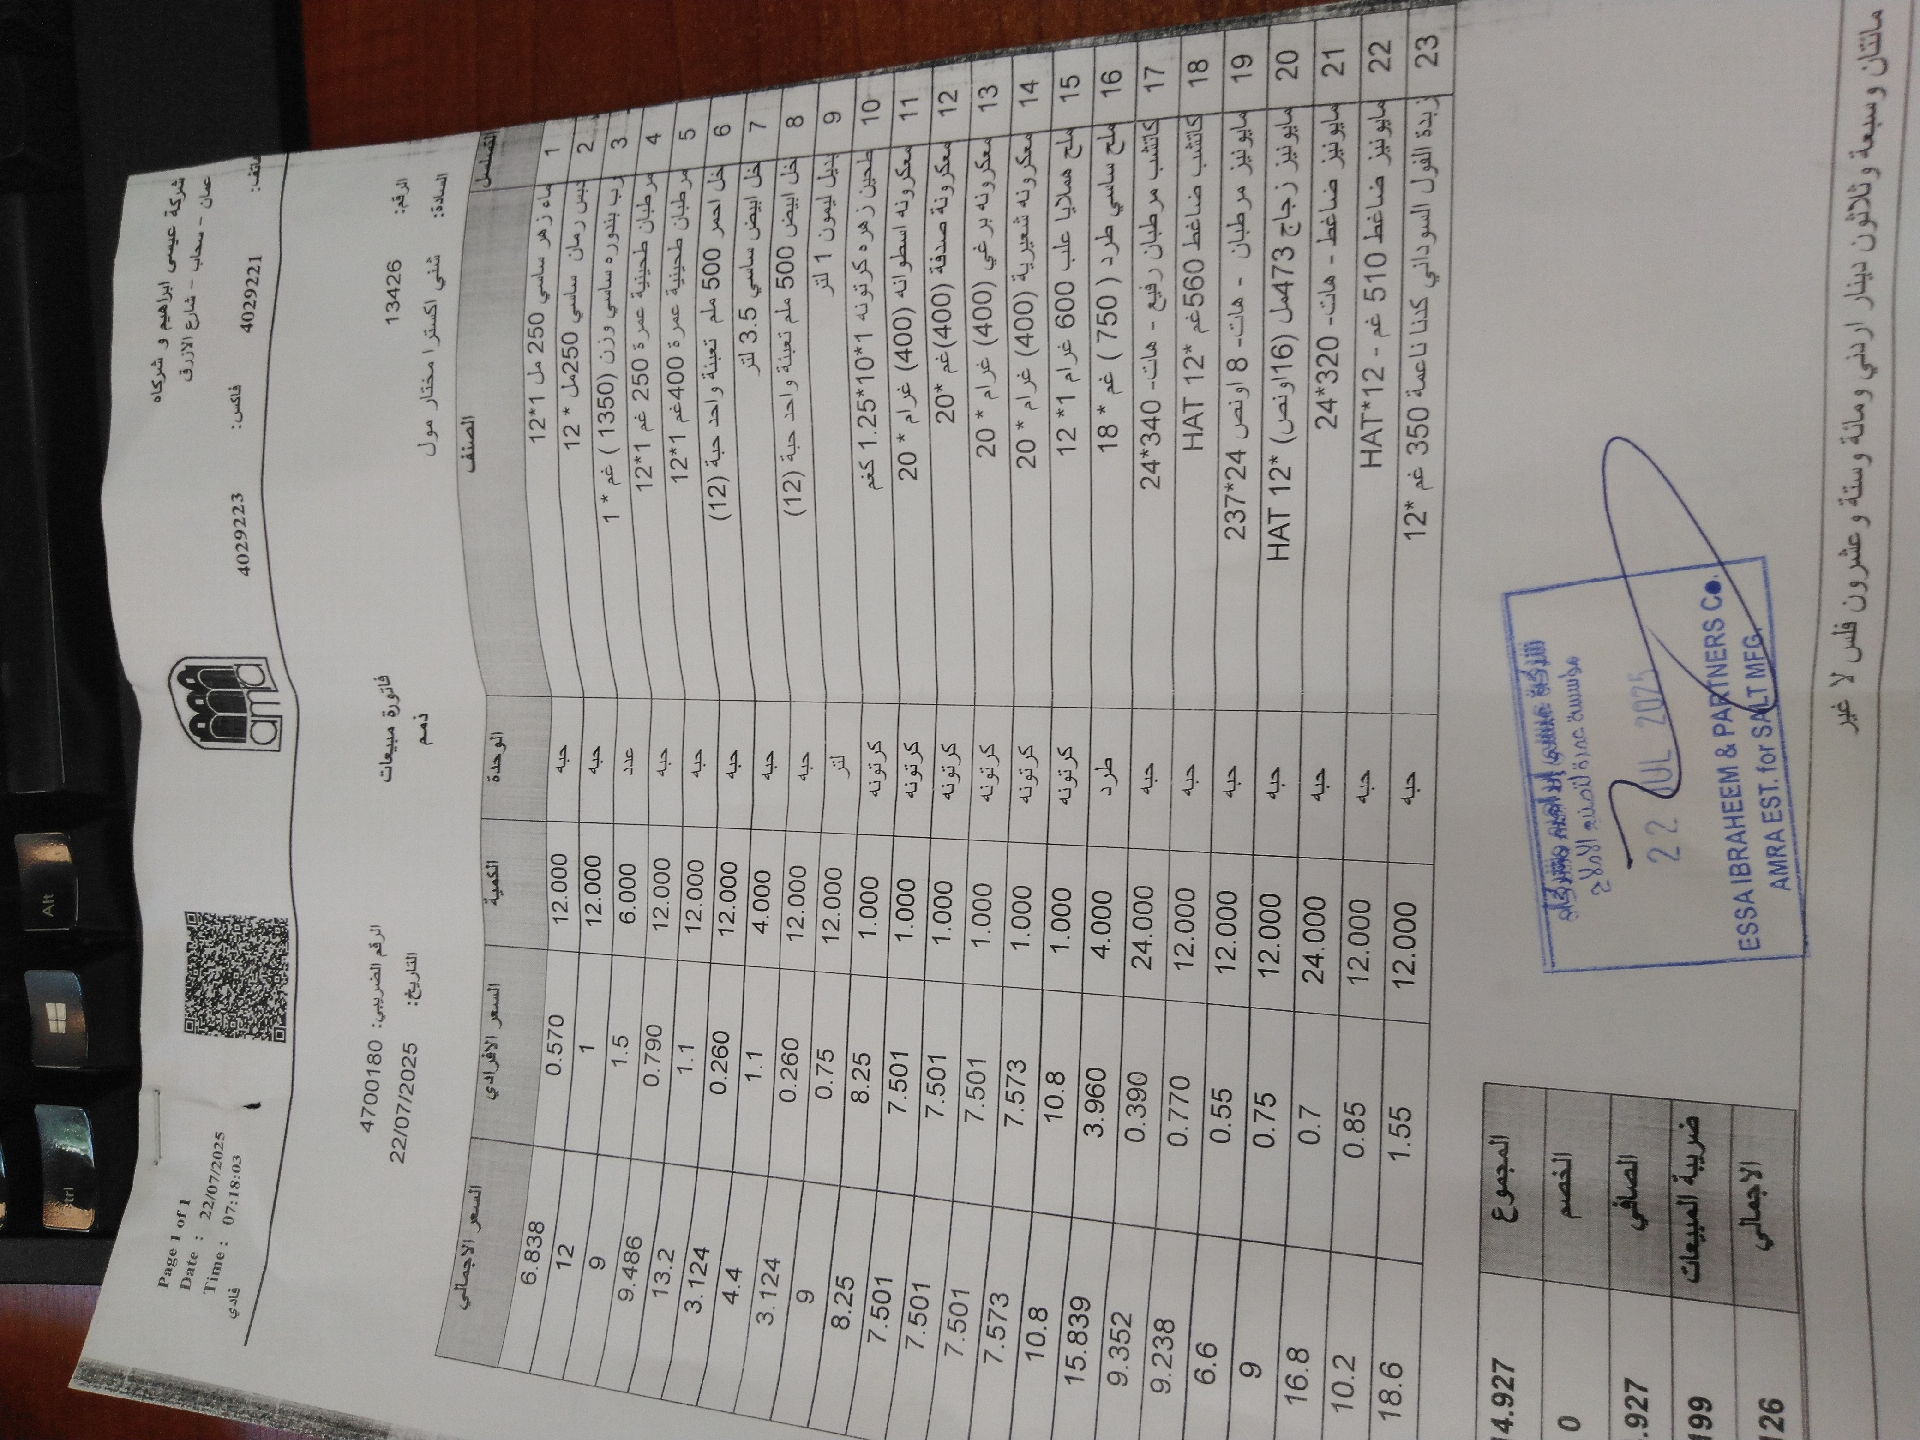 شركة عيسى ابراهيم و شركاه
عمان - سحاب - شارع الازرق
هاتف: 4029221 فاكس: 4029223
amra
Page 1 of 1
Date : 22/07/2025
Time : 07:18:03
فادي
الرقم: 13426
السادة: شني اكسترا مختار مول
فاتورة مبيعات
ذمم
الرقم الضريبي: 4700180
التاريخ: 22/07/2025
التسلسل الصنف الوحدة الكمية السعر الافرادي السعر الاجمالي
1 ماء زهر ساسي 250 مل 1*12 حبه 12.000 0.570 6.838
2 دبس رمان ساسي 250مل * 12 حبه 12.000 1 12
3 رب بندوره ساسي وزن (1350 ) غم * 1 عدد 6.000 1.5 9
4 مرطبان طحينية عمرة 250 غم 1*12 حبه 12.000 0.790 9.486
5 مرطبان طحينية عمرة 400غم 1*12 حبه 12.000 1.1 13.2
6 خل احمر 500 ملم تعبئة واحد حبة (12) حبه 12.000 0.260 3.124
7 خل ابيض ساسي 3.5 لتر حبه 4.000 1.1 4.4
8 خل ابيض 500 ملم تعبئة واحد حبة (12) حبه 12.000 0.260 3.124
9 بديل ليمون 1 لتر لتر 12.000 0.75 9
10 طحين زهره كرتونه 1*10*1.25 كغم كرتونه 1.000 8.25 8.25
11 معكرونه اسطوانه (400) غرام * 20 كرتونه 1.000 7.501 7.501
12 معكرونة صدفة (400)غم *20 كرتونه 1.000 7.501 7.501
13 معكرونه برغي (400) غرام * 20 كرتونه 1.000 7.501 7.501
14 معكرونه شعيرية (400) غرام * 20 كرتونه 1.000 7.573 7.573
15 ملح هملايا علب 600 غرام 1* 12 كرتونه 1.000 10.8 10.8
16 ملح ساسي طرد ( 750 ) غم * 18 طرد 4.000 3.960 15.839
17 كاتشب مرطبان رفيع - هات- 340*24 حبه 24.000 0.390 9.352
18 كاتشب ضاغط 560غم *12 HAT حبه 12.000 0.770 9.238
19 مايونيز مرطبان - هات- 8 اونص 24*237 حبه 12.000 0.55 6.6
20 مايونيز زجاج 473مل (16اونص) *12 HAT حبه 12.000 0.75 9
21 مايونيز ضاغط - هات- 320*24 حبه 24.000 0.7 16.8
22 مايونيز ضاغط 510 غم - 12*HAT حبه 12.000 0.85 10.2
23 زبدة الفول السوداني كدنا ناعمة 350 غم *12 حبه 12.000 1.55 18.6
شركة عيسى ابراهيم وشركاه
مؤسسة عمرة لتصنيع الاملاح
22 JUL 2025
ESSA IBRAHEEM & PARTNERS Co.
AMRA EST. for SALT MFG.
المجموع 4.927
الخصم 0
الصافي .927
ضريبة المبيعات 199
الاجمالي 126
مائتان وسبعة وثلاثون دينار اردني ومائة وستة وعشرون فلس لا غير
Alt